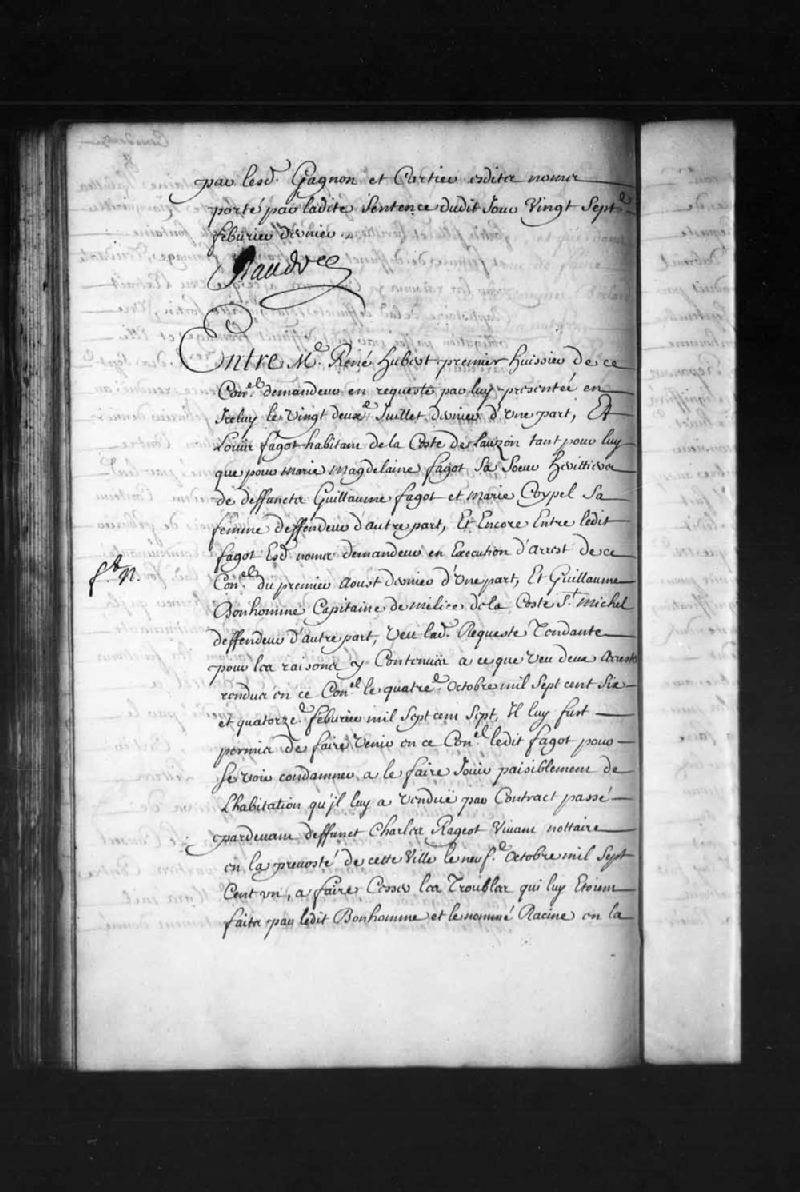 par lesd. Gagnon et Cortier esdits noms
porté par ladite Sentence dudit Jour Vingt Sept.e
febvrier dernier
Raudot
Entre M.e René Hubert premier huissier de ce
Con.el demandeur en requeste par luy presentée en
Iceluy le Vingt deux.e Juillet dernier d'Une part, Et
Louis fagot habitant de la Coste de Lauzon tant pour luy
que pour Marie Magdelaine fagot Sa Soeur heritiers
de deffuncts Guillaume fagot et Marie Coypel Sa
femme deffendeur d'autre part, Et Encore Entre ledit
fagot Esd. noms demandeur en Execution d'arest de ce
Con.el du premier Aoust dernier d'Une part, Et Guillaume
Bonhomme Capitaine de milice de la Coste S.t Michel
deffendeur d'autre part, Veu lad. Requeste Tendante
pour les raisons y Contenues a ce que Veu deux Arrests
rendus en ce Con.el le quatre.e Octobre mil Sept cent Six
et quatorze.e febvrier mil Sept cent Sept, Il luy fust
permis de faire Venir en ce Con.el ledit fagot pour
Se voir condamner a le faire Jouir paisiblement de
L'habitation qu'il luy a Vendüe par Contract passé
pardevant deffunct Charles Rageot Vivant nottaire
en la prevosté de cette Ville le neuf.e Octobre mil Sept
Cent un, a faire Cesser les Troubles qui luy Etoient
faits par ledit Bonhomme et le nommé Racine en la